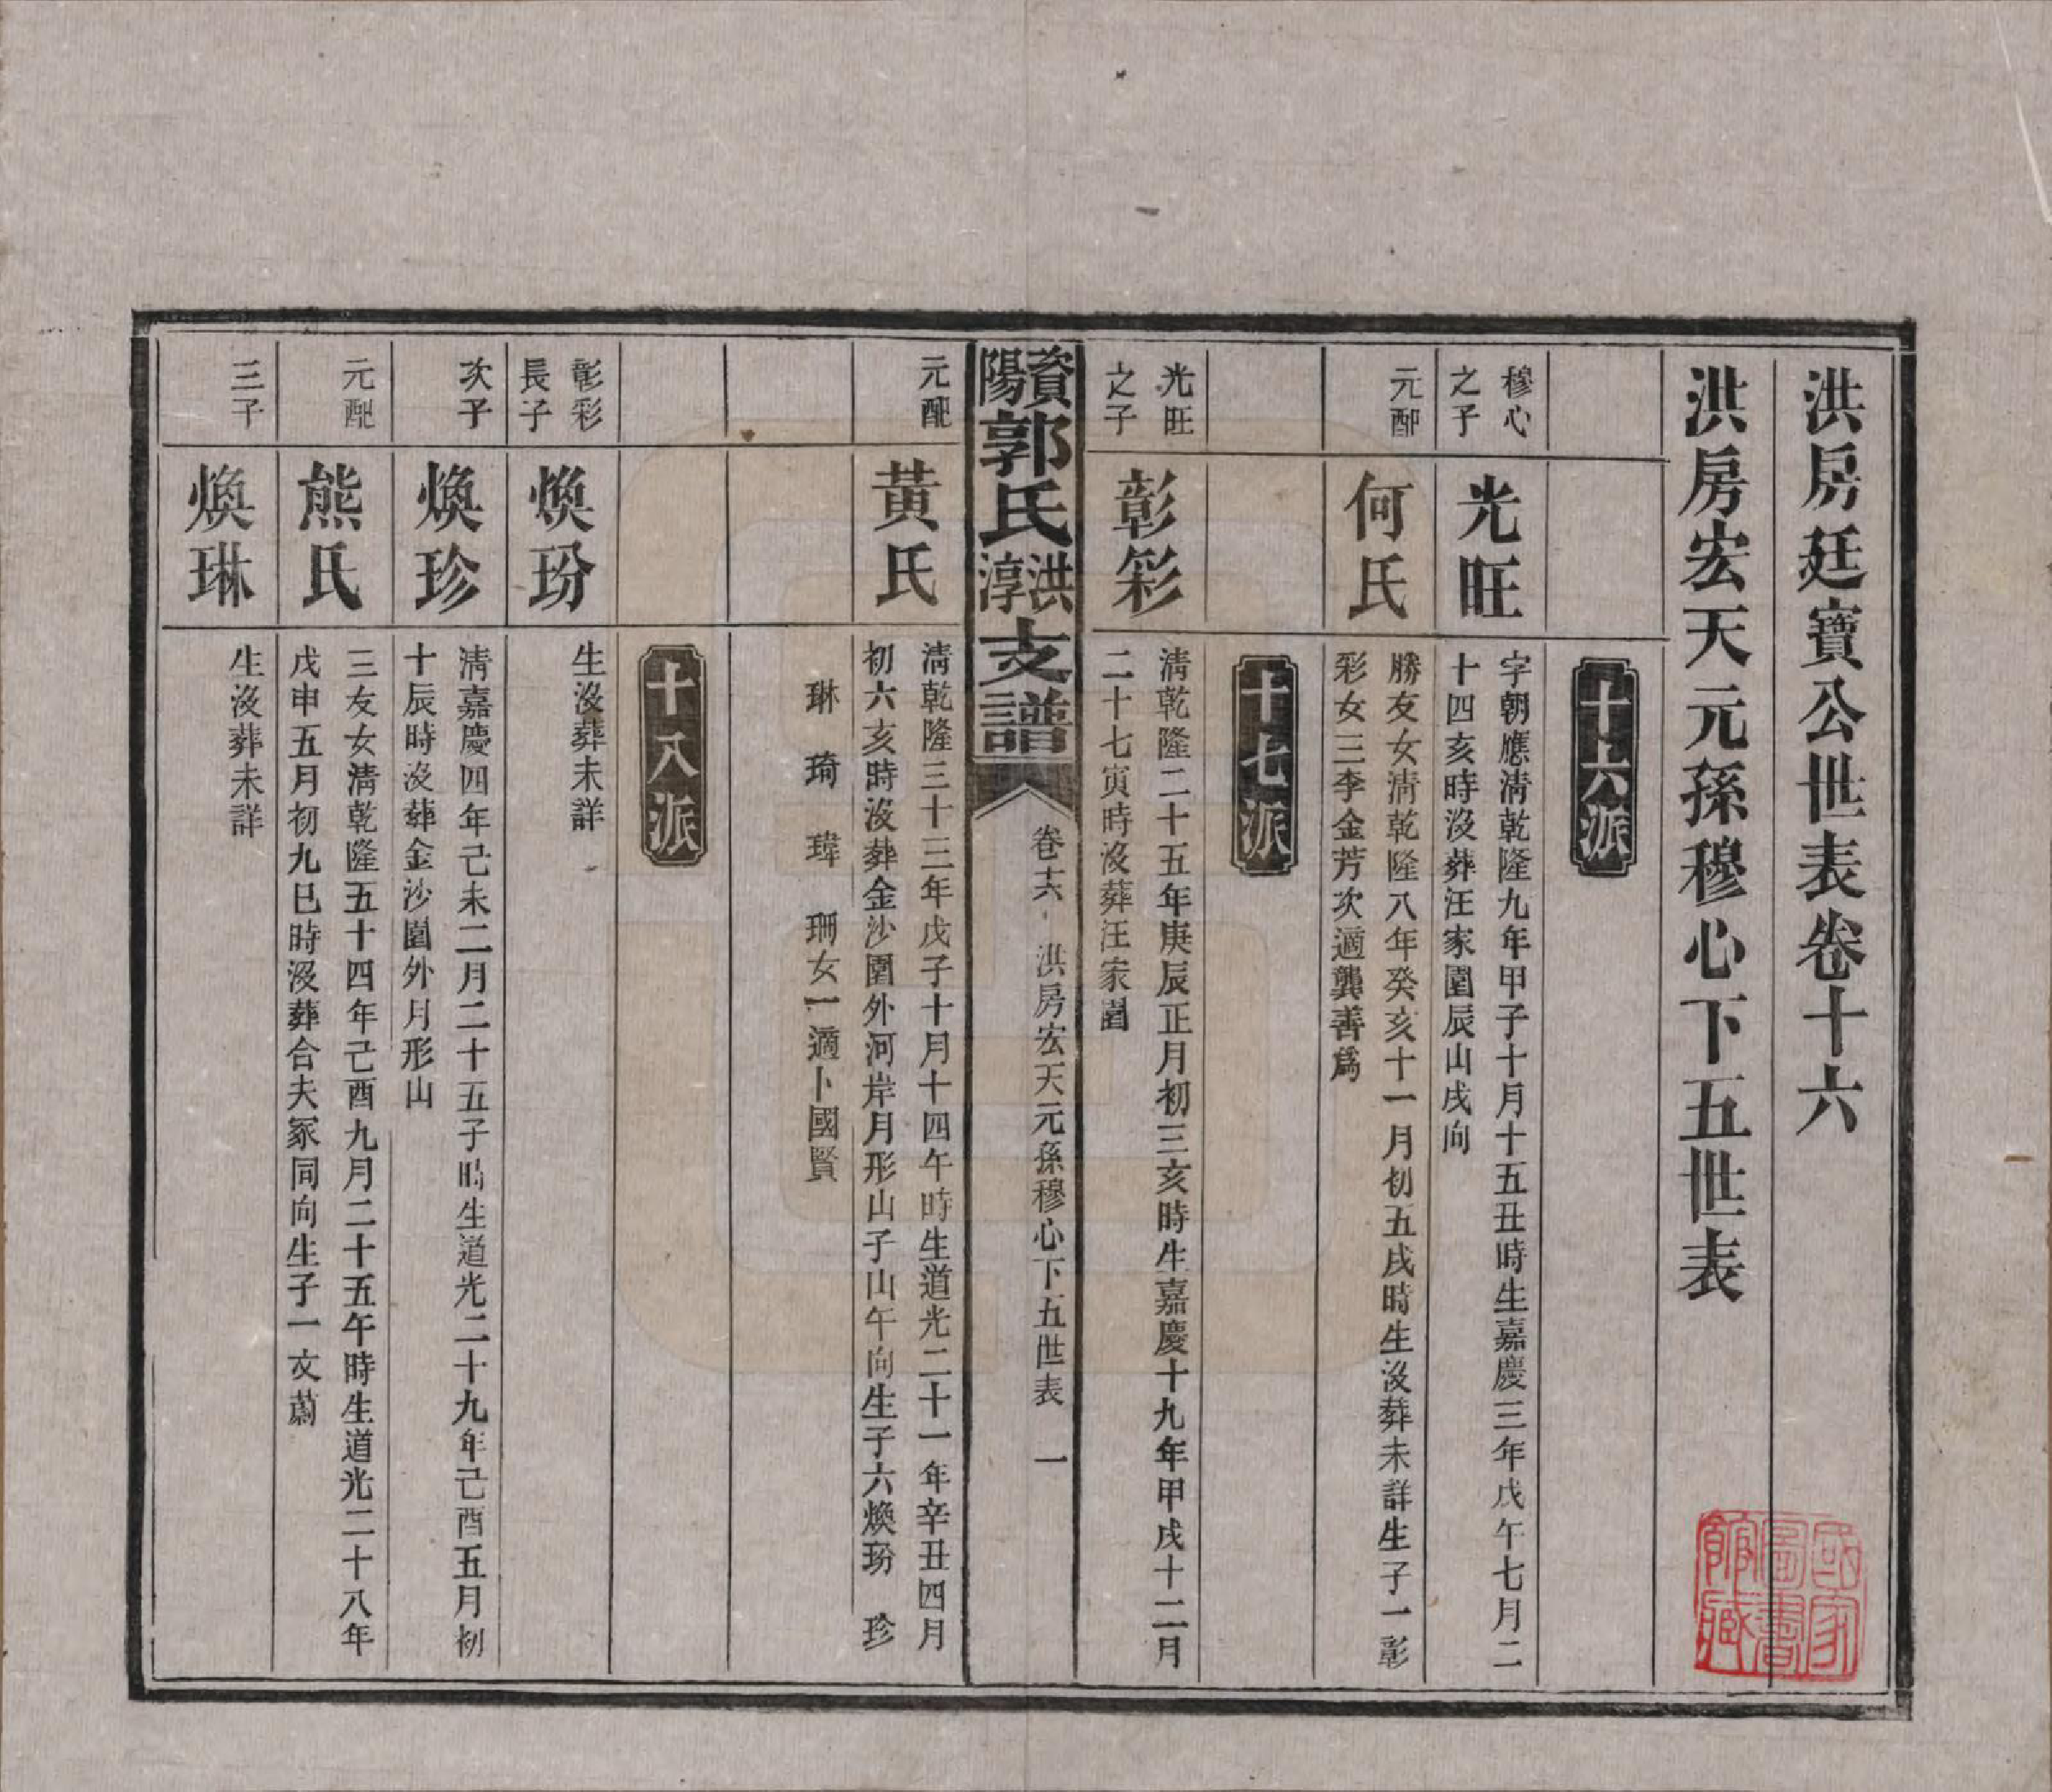 洪房廷寶公世表卷十六
洪房宏天元孫穆心下五世表
十六派
穆心
之子
光旺
字朝應淸乾隆九年甲子十月十五丑時生嘉慶三年戊午七月二
十四亥時沒葬汪家園辰山戌向
元配
何氏
勝友女淸乾隆八年癸亥十一月初五戌時生沒葬未詳生子一彰
彩女三李金芳次適龔善爲
十七派
光旺
之子
彰彩
淸乾隆二十五年庚辰正月初三亥時生嘉慶十九年甲戌十二月
二十七寅時沒葬汪家園
資陽郭氏洪淳支譜
卷十六 洪房宏天元孫穆心下五世表 一
元配
黃氏
淸乾隆三十三年戊子十月十四午時生道光二十一年辛丑四月
初六亥時沒葬金沙圍外河岸月形山子山午向生子六煥玢 珍
琳 琦 瑋 珊女一適卜國賢
十八派
彰彩
長子
煥玢
生沒葬未詳
次子
煥珍
淸嘉慶四年己未二月二十五子時生道光二十九年己酉五月初
十辰時沒葬金沙圍外月形山
元配
熊氏
三友女淸乾隆五十四年己酉九月二十五午時生道光二十八年
戊申五月初九巳時沒葬合夫冢同向生子一文蔚
三子
煥琳
生沒葬未詳
國家圖書館藏